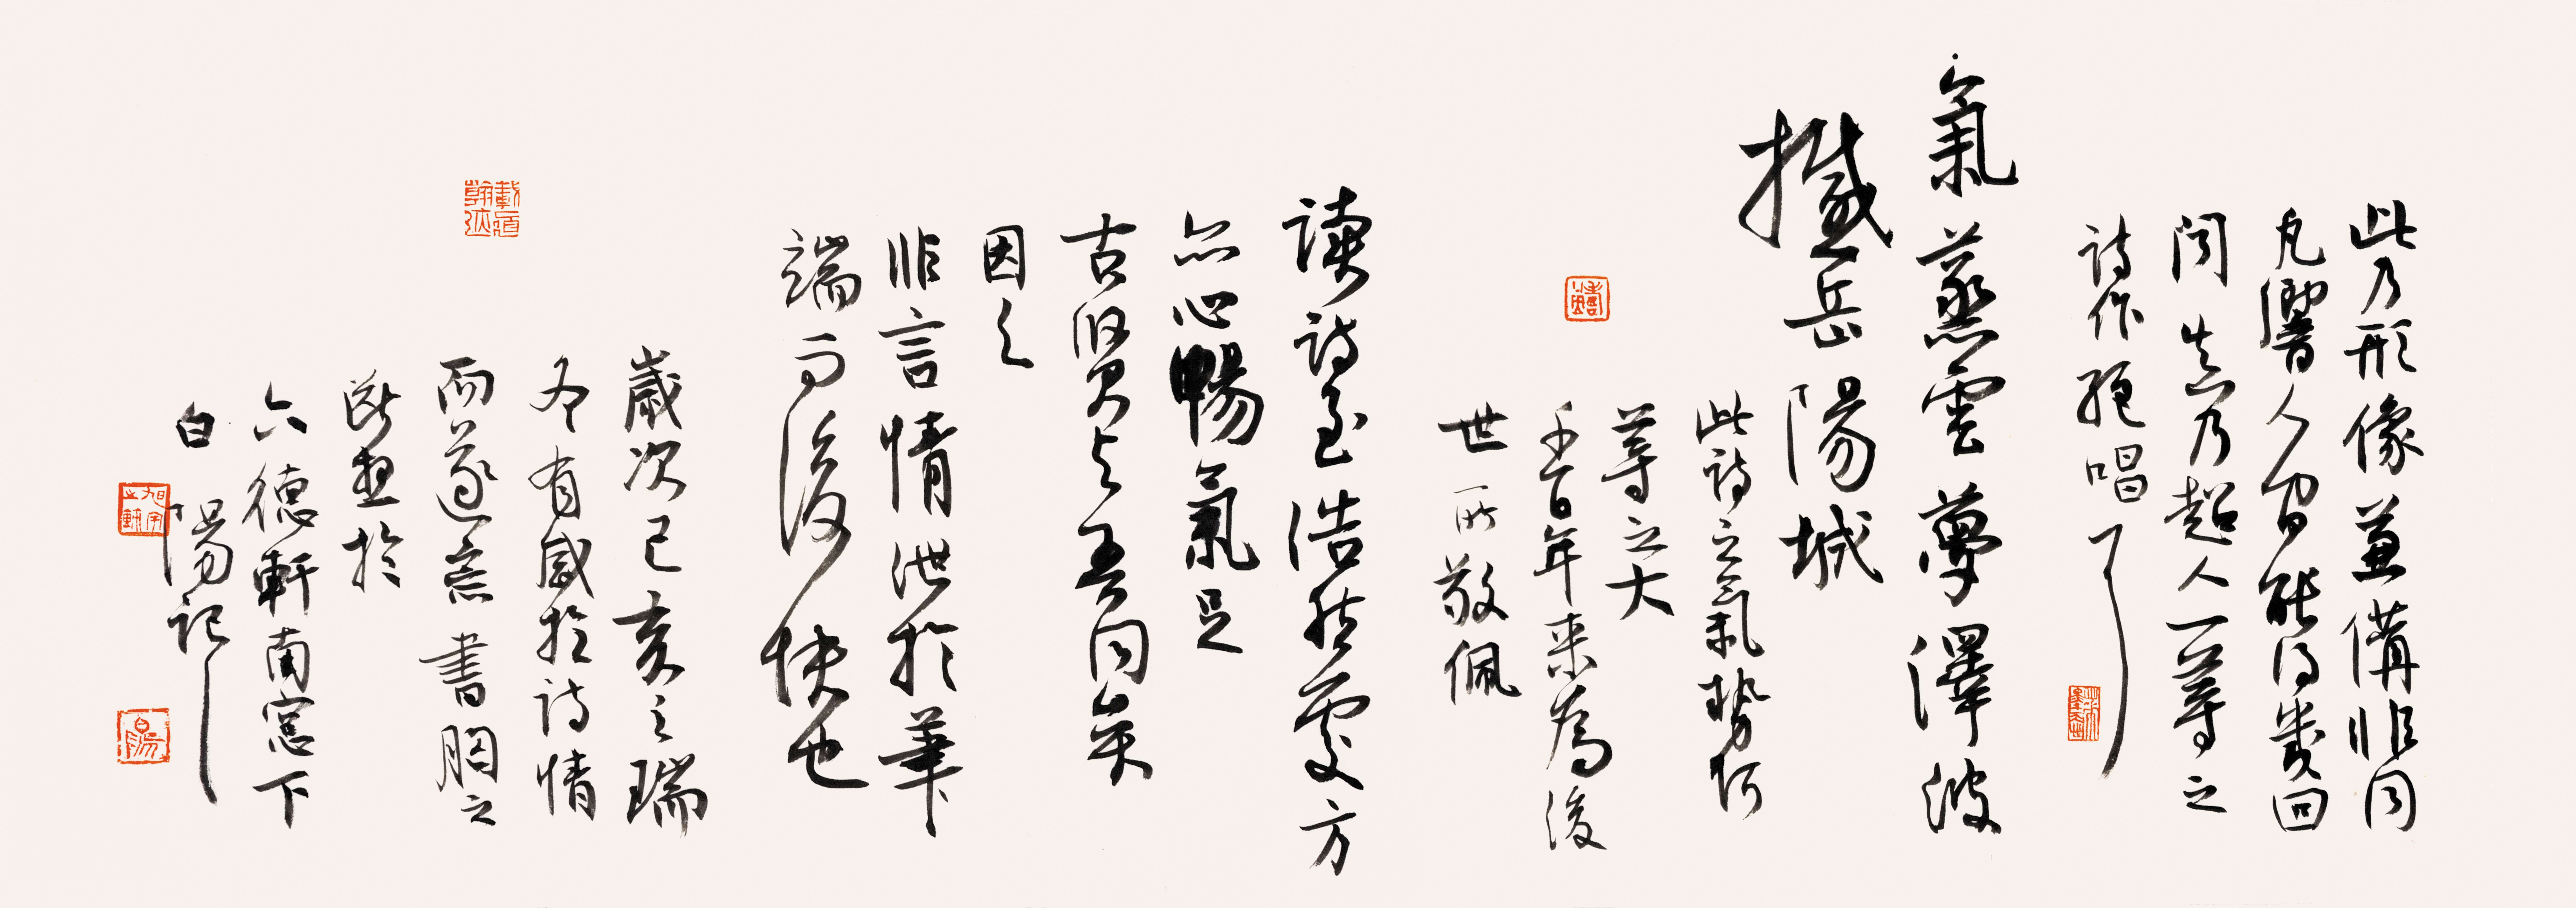 此乃形像兼備非同
凡響人間能得幾回
聞 真乃超人一等之
詩作絕唱了
氣蒸雲夢澤波
撼岳陽城
此詩之氣勢何
等之大
千百年来為後
世所敬佩
讀詩至浩然處方
心暢氣足
古賢与吾同矣
因之
非言情泄於筆
端而後快也
歲次己亥之瑞
冬有感於詩情
而遂意書胸之
於
六德軒南窓下
白陽記
白陽